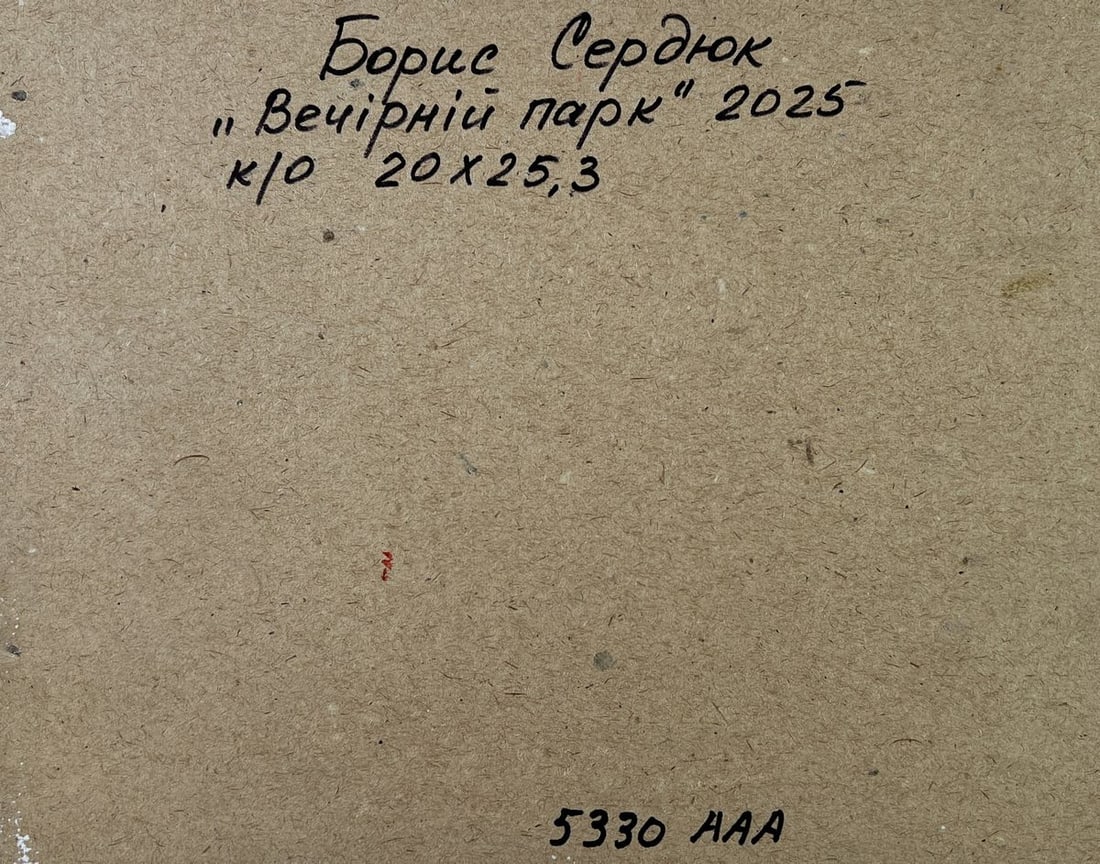 Борис Сердюк
„Вечірній парк“ 2025
к/о 20х25,3
5330 ААА